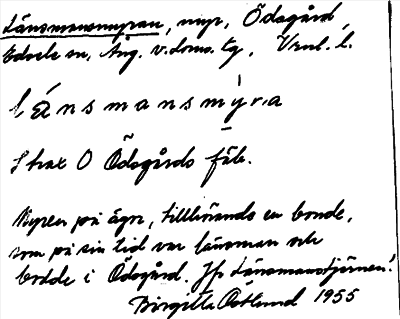 Länsmansmyran, myr, Ödsgård,
Edsele sn, Ång. v. doms. tg, Vnrl. l.
länsmansmýra
Strax O Ödsgårds fäb.
Myren på ägor, tillhörande en bonde,
som på sin tid var länsman och
bodde i Ödsgård. Jfr Länsmanstjärnen!
Birgitta Östlund 1955